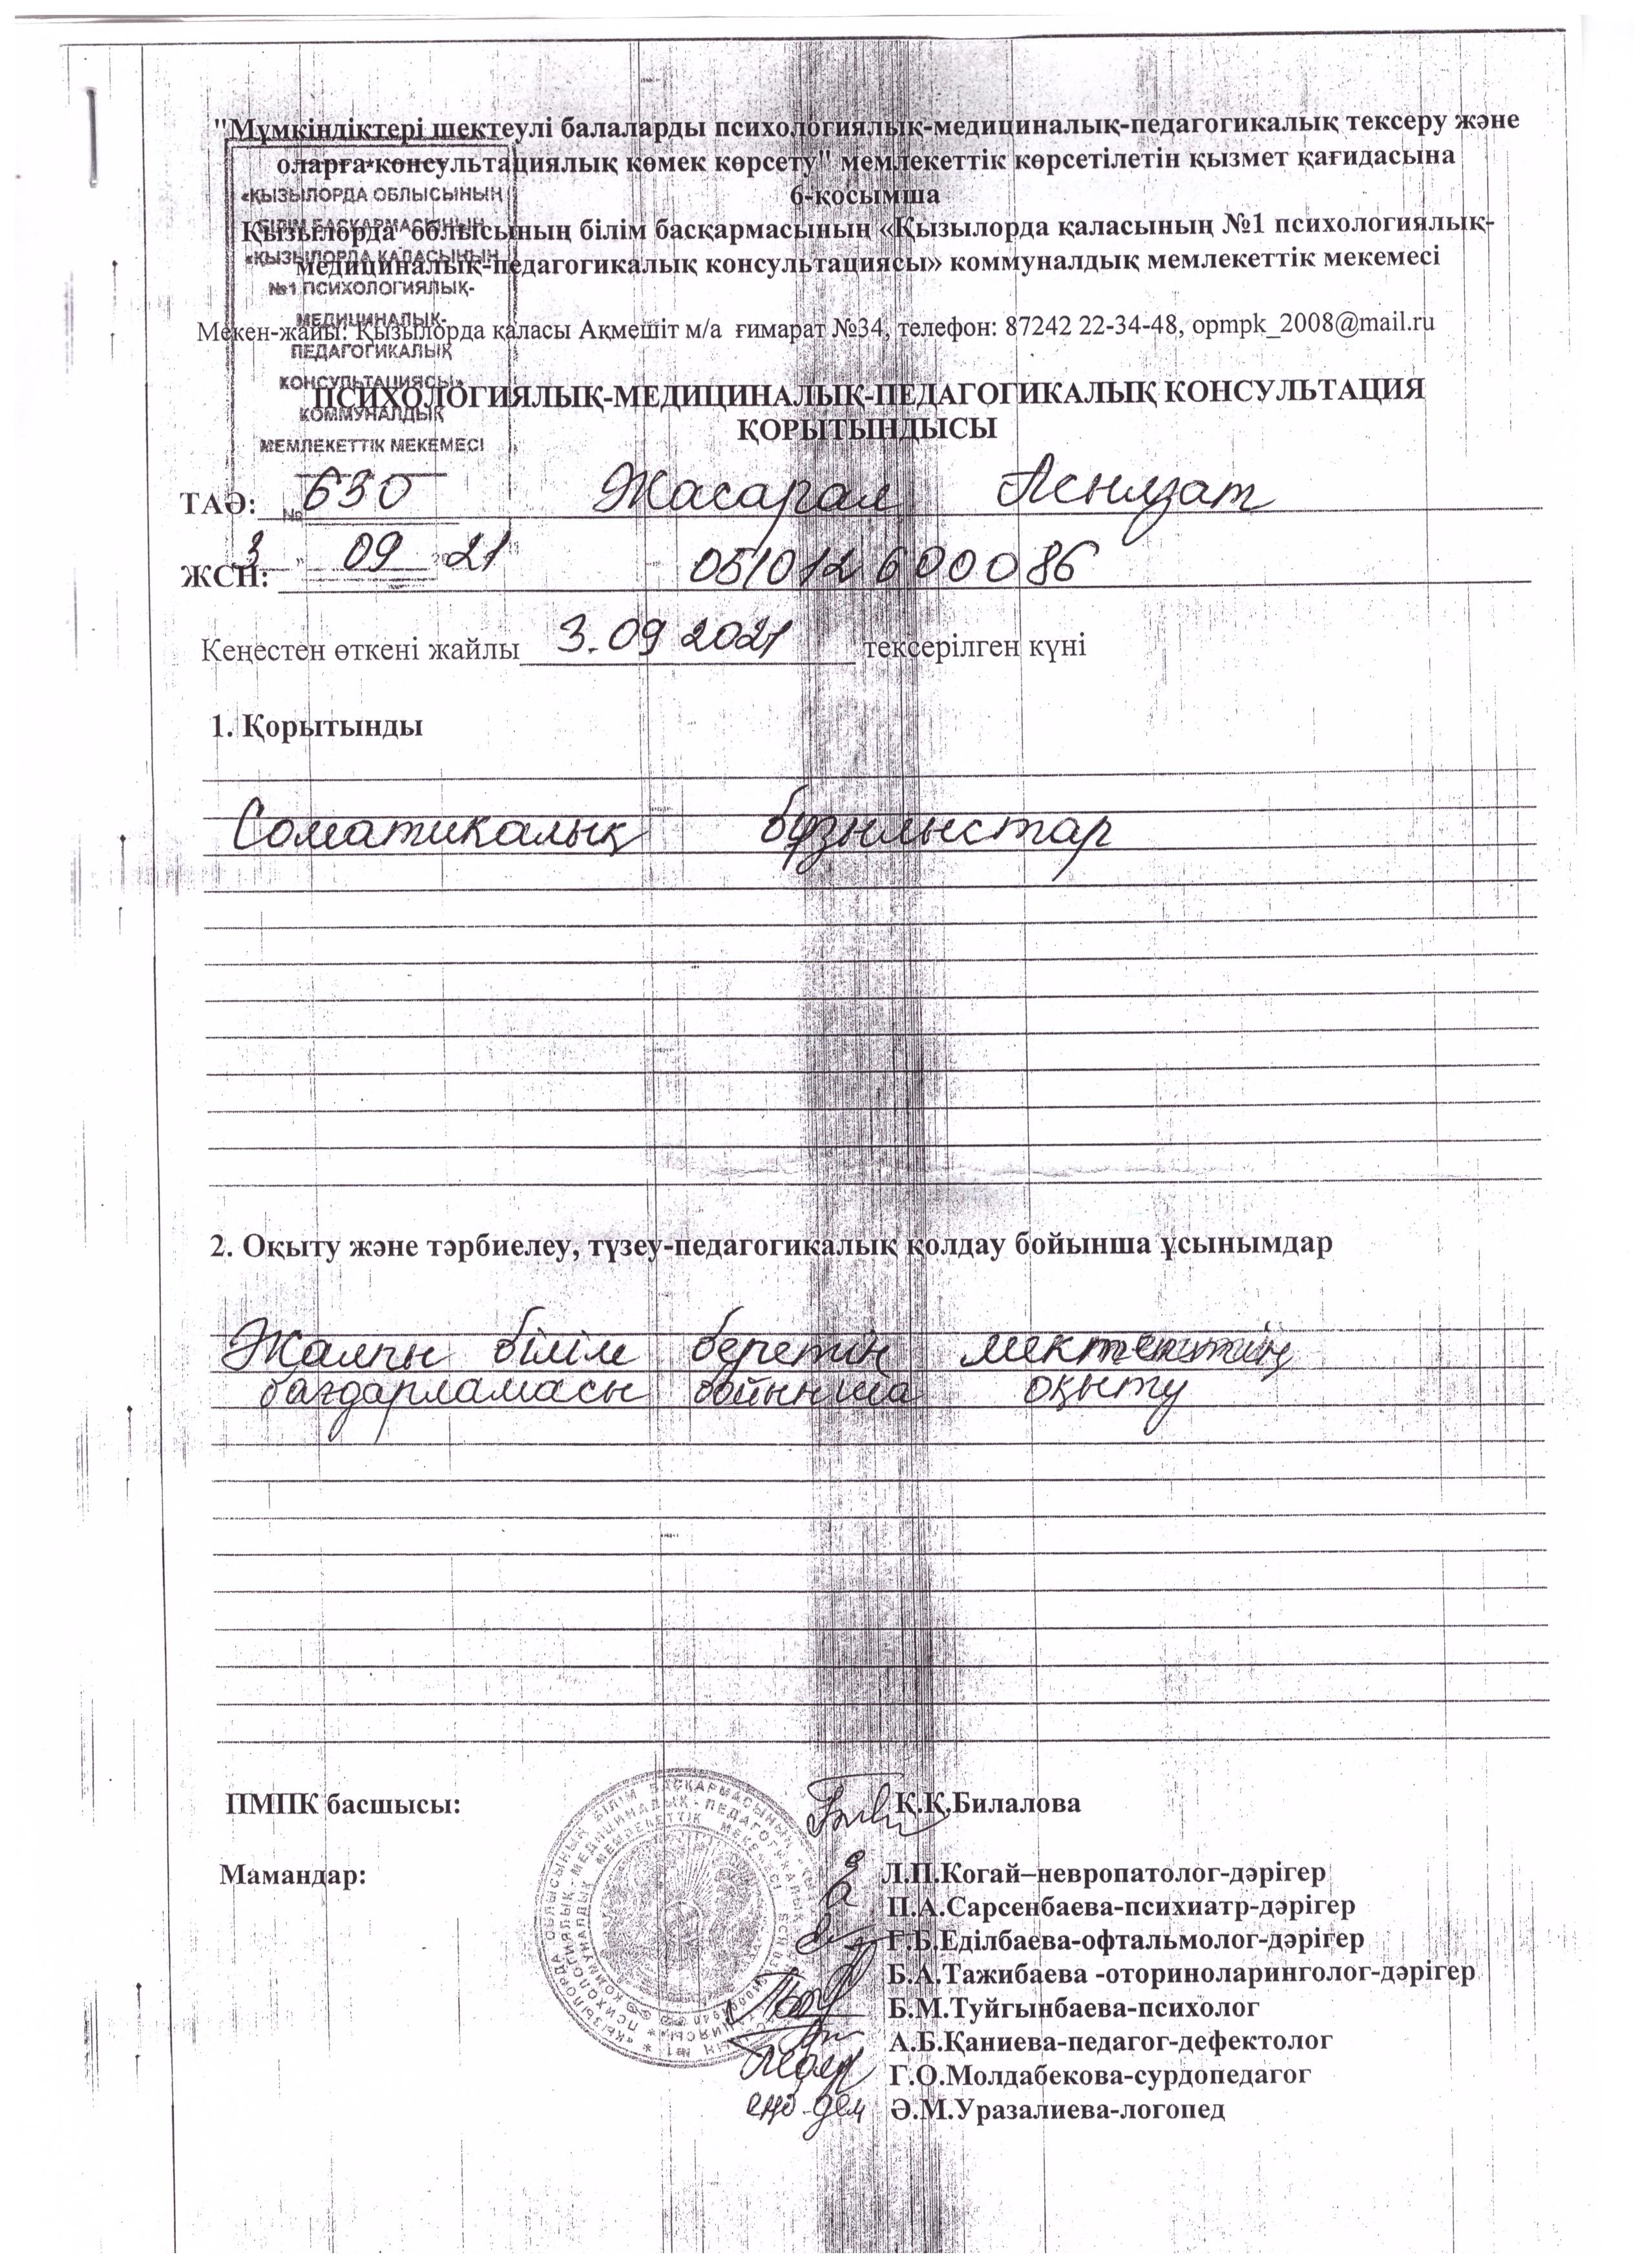 "Мүмкіндіктері шектеулі балаларды психологиялық-медициналық-педагогикалық тексеру және
оларға консультациялық көмек көрсету" мемлекеттік көрсетілетін қызмет қағидасына
6-қосымша
Қызылорда облысының білім басқармасының «Қызылорда қаласының №1 психологиялық-
медициналық-педагогикалық консультациясы» коммуналдық мемлекеттік мекемесі
«ҚЫЗЫЛОРДА ОБЛЫСЫНЫҢ
БІЛІМ БАСҚАРМАСЫНЫҢ
«ҚЫЗЫЛОРДА ҚАЛАСЫНЫҢ
№1 ПСИХОЛОГИЯЛЫҚ-
МЕДИЦИНАЛЫҚ-
ПЕДАГОГИКАЛЫҚ
КОНСУЛЬТАЦИЯСЫ»
КОММУНАЛДЫҚ
МЕМЛЕКЕТТІК МЕКЕМЕСІ
Мекен-жайы: Қызылорда қаласы Ақмешіт м/а ғимарат №34, телефон: 87242 22-34-48, opmpk_2008@mail.ru
ПСИХОЛОГИЯЛЫҚ-МЕДИЦИНАЛЫҚ-ПЕДАГОГИКАЛЫҚ КОНСУЛЬТАЦИЯ
ҚОРЫТЫНДЫСЫ
ТАӘ: № 630 Жасарал Асылзат
3 09 21
ЖСН: 051012600086
Кеңестен өткені жайлы 3.09 2021 тексерілген күні
1. Қорытынды
Соматикалық бұзылыстар
2. Оқыту және тәрбиелеу, түзеу-педагогикалық қолдау бойынша ұсынымдар
Жалпы білім беретін мектептің
бағдарламасы бойынша оқыту
ПМПК басшысы: Қ.Қ.Билалова
Мамандар: Л.П.Когай–невропатолог-дәрігер
П.А.Сарсенбаева-психиатр-дәрігер
Г.Б.Еділбаева-офтальмолог-дәрігер
Б.А.Тажибаева -оториноларинголог-дәрігер
Б.М.Туйгынбаева-психолог
А.Б.Қаниева-педагог-дефектолог
Г.О.Молдабекова-сурдопедагог
Ә.М.Уразалиева-логопед